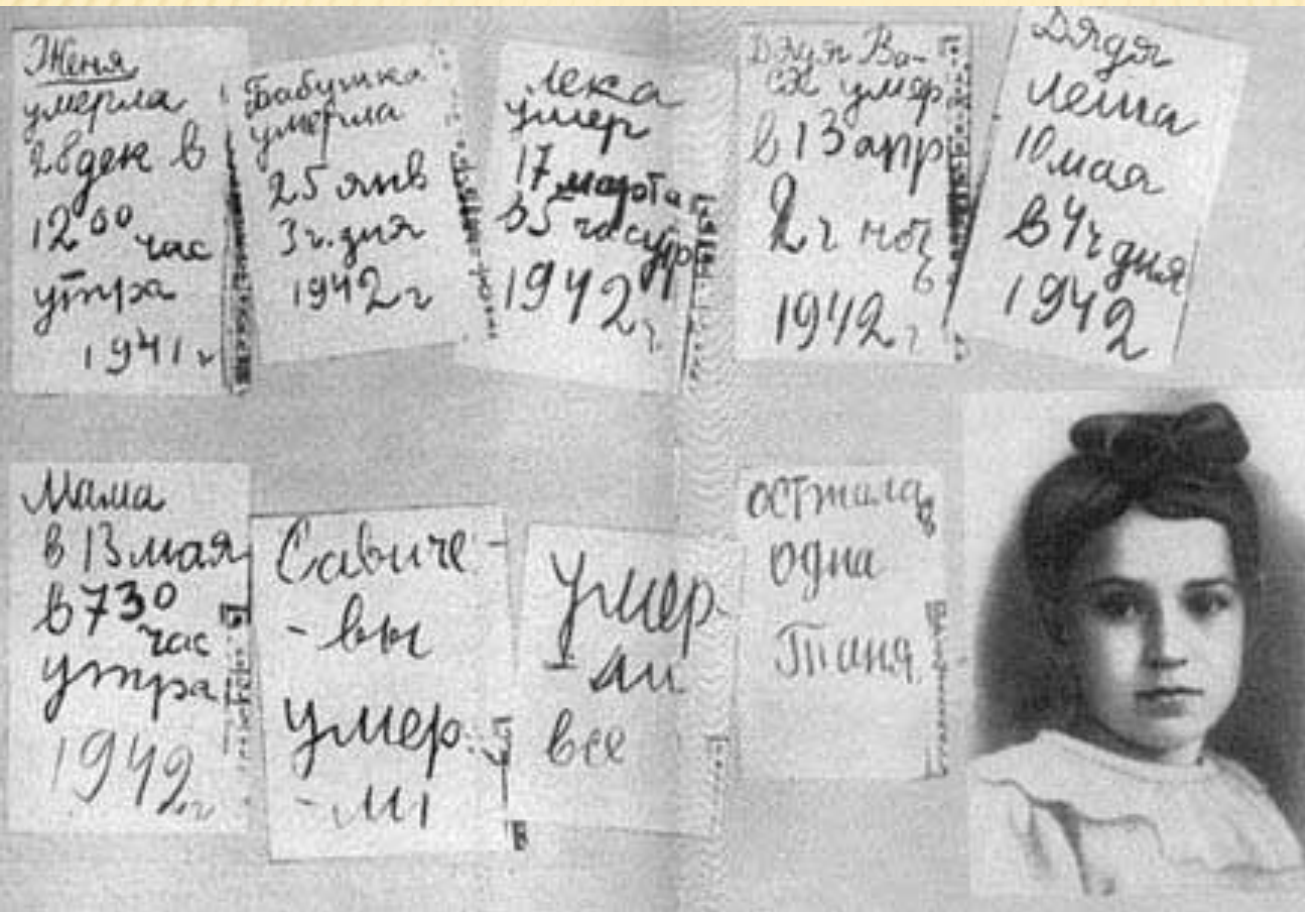 Женя
умерла
28 дек в
12 00 час
утра
1941 г
Бабушка
умерла
25 янв
3 ч. дня
1942 г
Лека
умер
17 марта
в 5 час утр
1942 г.
Дядя Ва-
ся умер
в 13 апр
2 ч ноч
1942 г
Дядя
Леша
10 мая
в 4 ч дня
1942
Мама
в 13 мая
в 7 30
час
утра
1942 г
Савиче-
-вы
умер-
-ли
Умер-
-ли
все
осталась
одна
Таня